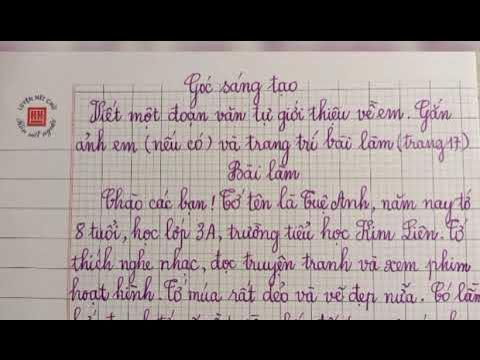 LUYỆN NÉT CHỮ
Rèn nết người
Góc sáng tạo
Viết một đoạn văn tự giới thiệu về em. Gắn
ảnh em (nếu có) và trang trí bài làm (trang 17)
Bài làm
Chào các bạn! Tớ tên là Tuê Anh, năm nay tớ
8 tuổi, học lớp 3A, trường tiểu học Kim Liên. Tớ
thích nghe nhạc, đọc truyện tranh và xem phim
hoạt hình. Tớ múa rất dẻo và vẽ đẹp nữa. Có lần